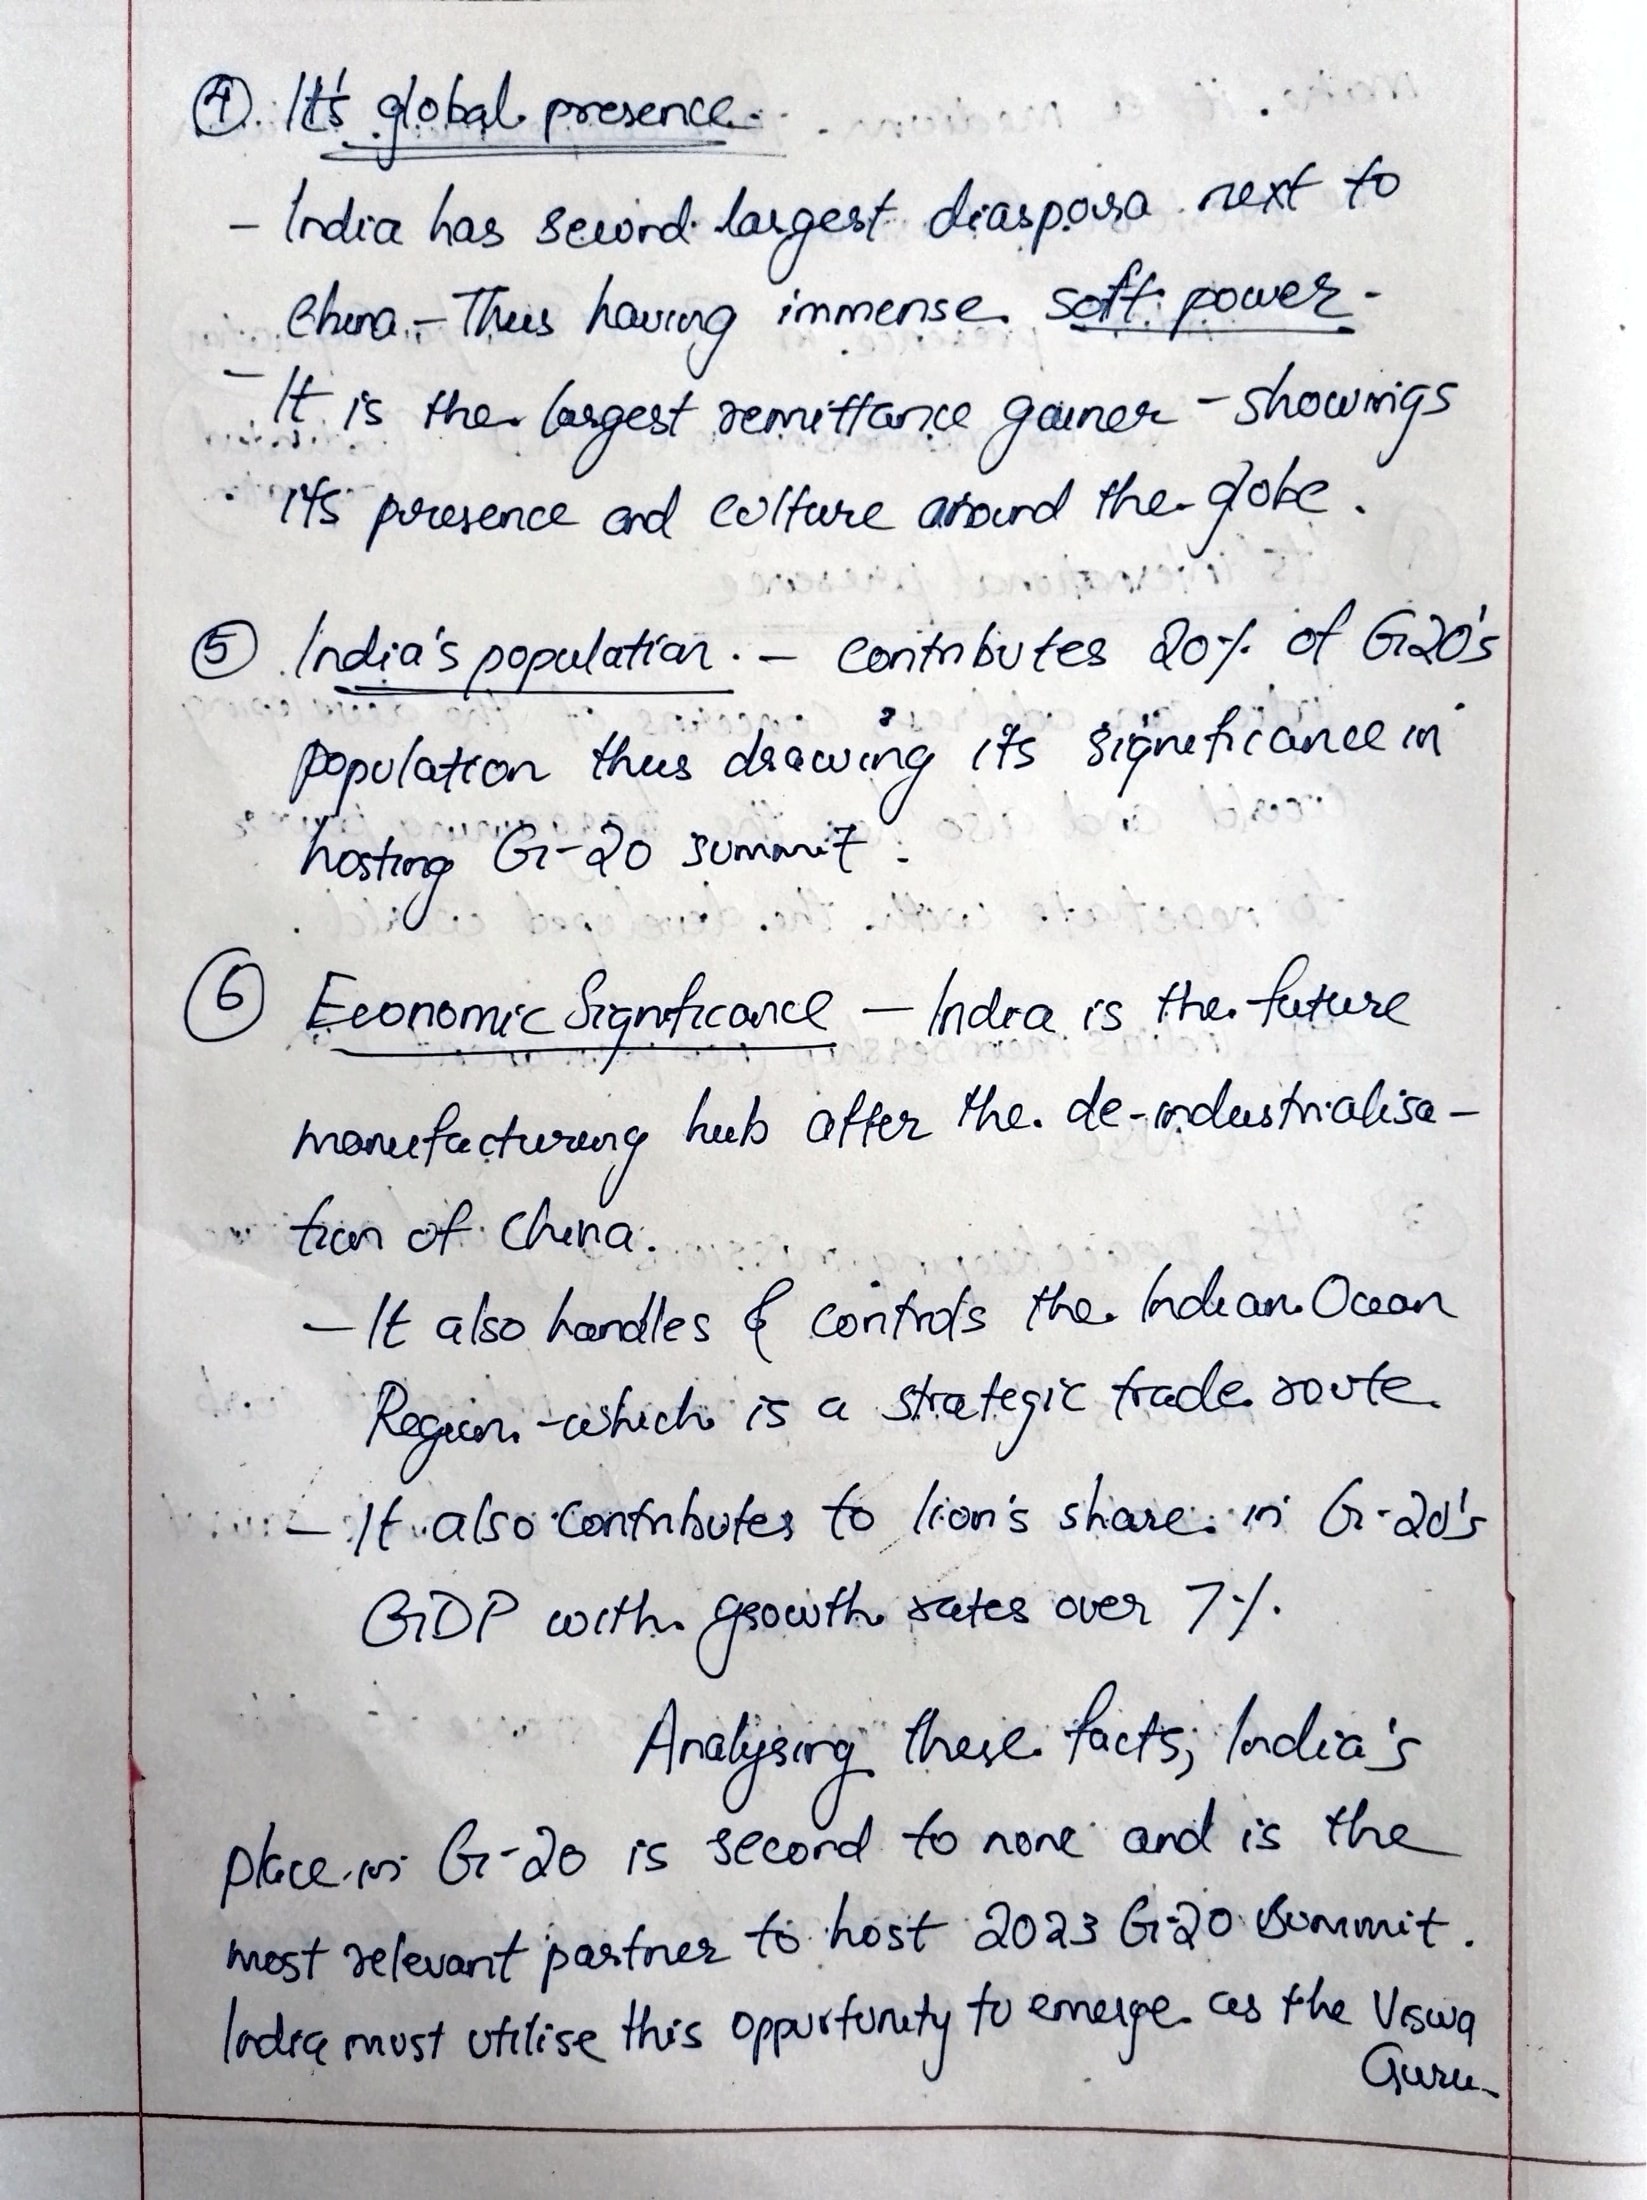 ④. It's global presence.
- India has second largest diaspora next to
China - Thus having immense soft power -
- It is the largest remittance gainer - showings
its presence and culture around the globe.
⑤ India's population. - contributes 20% of G20's
population thus drawing its significance in
hosting G-20 summit.
⑥ Economic Significance - India is the future
manufacturing hub after the de-industrialisa-
tion of China.
- It also handles & controls the Indian Ocean
Region - which is a strategic trade route.
- It also contributes to lion's share in G-20's
GDP with growth rates over 7%.
Analysing these facts, India's
place in G-20 is second to none and is the
most relevant partner to host 2023 G-20 Summit.
India must utilise this opportunity to emerge as the Viswa
Guru.